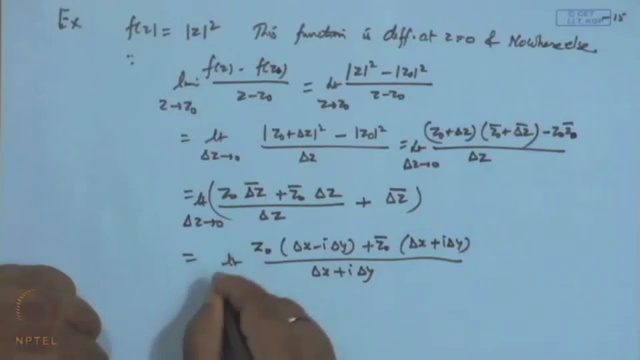 Ex f(z) = |z|² This function is diff. at z=0 & Nowhere else.
© CET
I.I.T. KGP
∵ lim_{z→z₀} (f(z) - f(z₀))/(z-z₀) = lt_{z→z₀} (|z|² - |z₀|²)/(z-z₀)
= lt_{Δz→0} (|z₀+Δz|² - |z₀|²)/Δz = lt_{Δz→0} ((z₀+Δz)(z̄₀+Δz̄) - z₀z̄₀)/Δz
= lt_{Δz→0} ((z₀ Δz̄ + z̄₀ Δz)/Δz + Δz̄)
= lt (z₀(Δx-iΔy) + z̄₀(Δx+iΔy))/(Δx+iΔy)
NPTEL